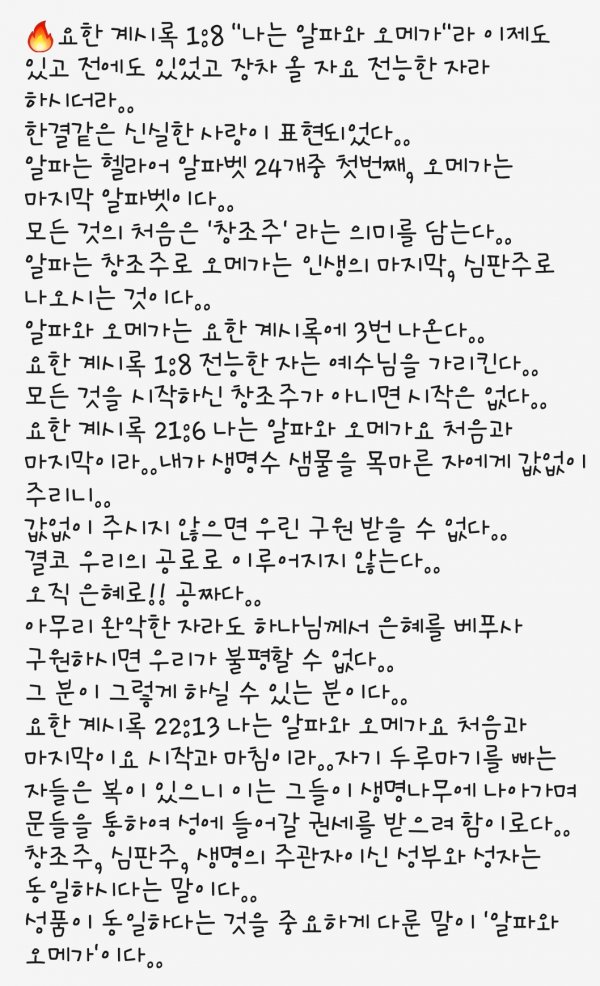 🔥요한 계시록 1:8 "나는 알파와 오메가"라 이제도
있고 전에도 있었고 장차 올 자요 전능한 자라
하시더라。。
한결같은 신실한 사랑이 표현되었다。。
알파는 헬라어 알파벳 24개중 첫번째, 오메가는
마지막 알파벳이다。。
모든 것의 처음은 '창조주' 라는 의미를 담는다。。
알파는 창조주로 오메가는 인생의 마지막, 심판주로
나오시는 것이다。。
알파와 오메가는 요한 계시록에 3번 나온다。。
요한 계시록 1:8 전능한 자는 예수님을 가리킨다。。
모든 것을 시작하신 창조주가 아니면 시작은 없다。。
요한 계시록 21:6 나는 알파와 오메가요 처음과
마지막이라。。내가 생명수 샘물을 목마른 자에게 값없이
주리니。。
값없이 주시지 않으면 우린 구원 받을 수 없다。。
결코 우리의 공로로 이루어지지 않는다。。
오직 은혜로!! 공짜다。。
아무리 완악한 자라도 하나님께서 은혜를 베푸사
구원하시면 우리가 불평할 수 없다。。
그 분이 그렇게 하실 수 있는 분이다。。
요한 계시록 22:13 나는 알파와 오메가요 처음과
마지막이요 시작과 마침이라。。자기 두루마기를 빠는
자들은 복이 있으니 이는 그들이 생명나무에 나아가며
문들을 통하여 성에 들어갈 권세를 받으려 함이로다。。
창조주, 심판주, 생명의 주관자이신 성부와 성자는
동일하시다는 말이다。。
성품이 동일하다는 것을 중요하게 다룬 말이 '알파와
오메가'이다。。